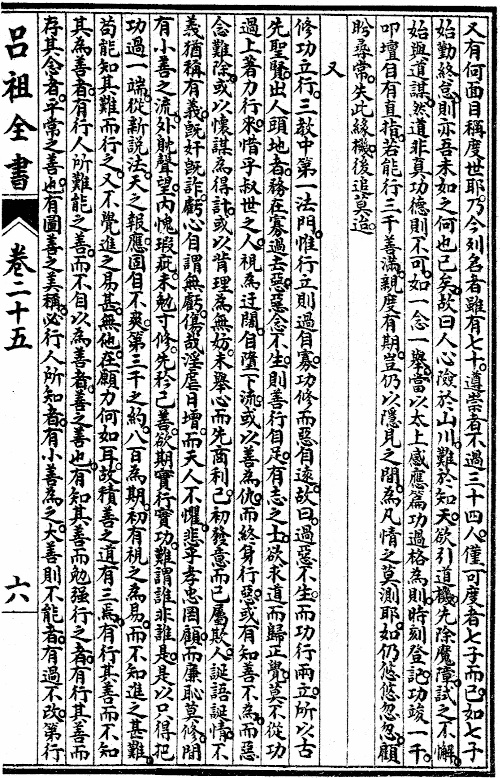 又有何面目稱度世耶乃今列名者雖有七十遵崇者不過三十四人僅可度者七子而已如七子
始勤終怠則亦吾末如之何也已矣故曰人心險於山川難於知天欲引道機先除魔障試之不懈
始與道謀然道非真功德則不可如一念一舉當以太上感應篇功過格為則時刻登記功竣一千
叩壇自有直指若能行三千善滿親度有期豈仍以隱見之間為凡情之莫測耶如仍悠悠忽忽顧
盻尋常失此緣機後追莫造
又
修功立行三教中第一法門惟行立則過自寡功修而惡自遠故曰過惡不生而功行兩立所以古
先聖賢出人頭地者務在寡過去惡惡念不生則善行自足有志之士欲求道而歸正覺莫不從功
過上著力行來惜乎叔世之人視為迂闊自墮下流或以善為仇而終身行惡或有知善不為而惡
念難除或以懷謀為得計或以背理為無妨未舉心而先商利己初發意而己屬欺人誕語誕情不
義猶稱有義旣奸旣詐虧心自謂無虧傷哉淫虐日增而天人不懼悲乎孝忠罔顧而廉恥莫修間
有小善之流外躭聲望內愧瑕疵未勉寸修先矜己善欲期實行實功難謂誰非誰是是以只得把
功過一端從新說法天之報應固自不爽第三千之約八百為期初有視之為易而不知進之甚難
苟能知其難而行之又不覺進之易甚無他在願力何如耳故積善之道有三焉有行其善而不知
其為善者有行人所難能之善而不自以為善者善之善也有知其善而勉强行之者有行其善而
存其念者平常之善也有圖善之美稱必行人所知者有小善為之大善則不能者有過不改第行
呂祖全書
卷二十五
六